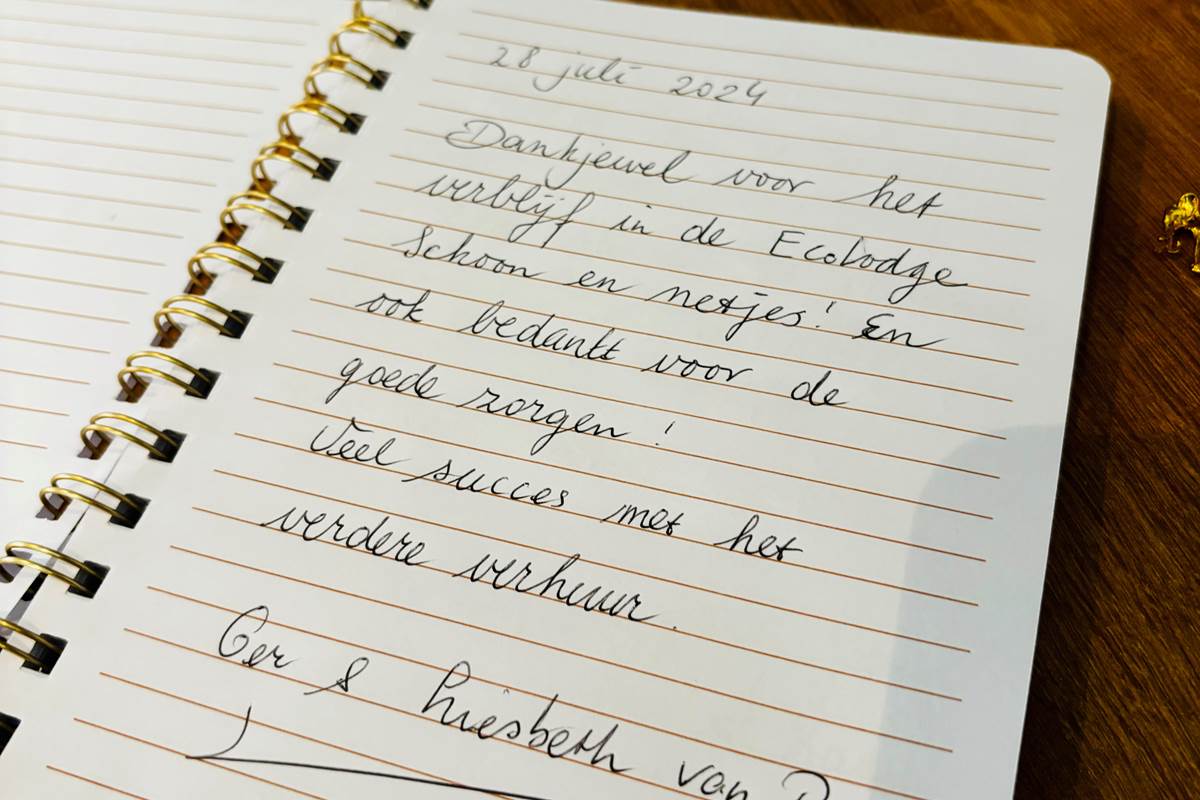 28 juli 2024
Dankjewel voor het
verblijf in de Ecolodge
schoon en netjes! En
ook bedankt voor de
goede zorgen!
Veel succes met het
verdere verhuur.
Ger & Liesbeth van